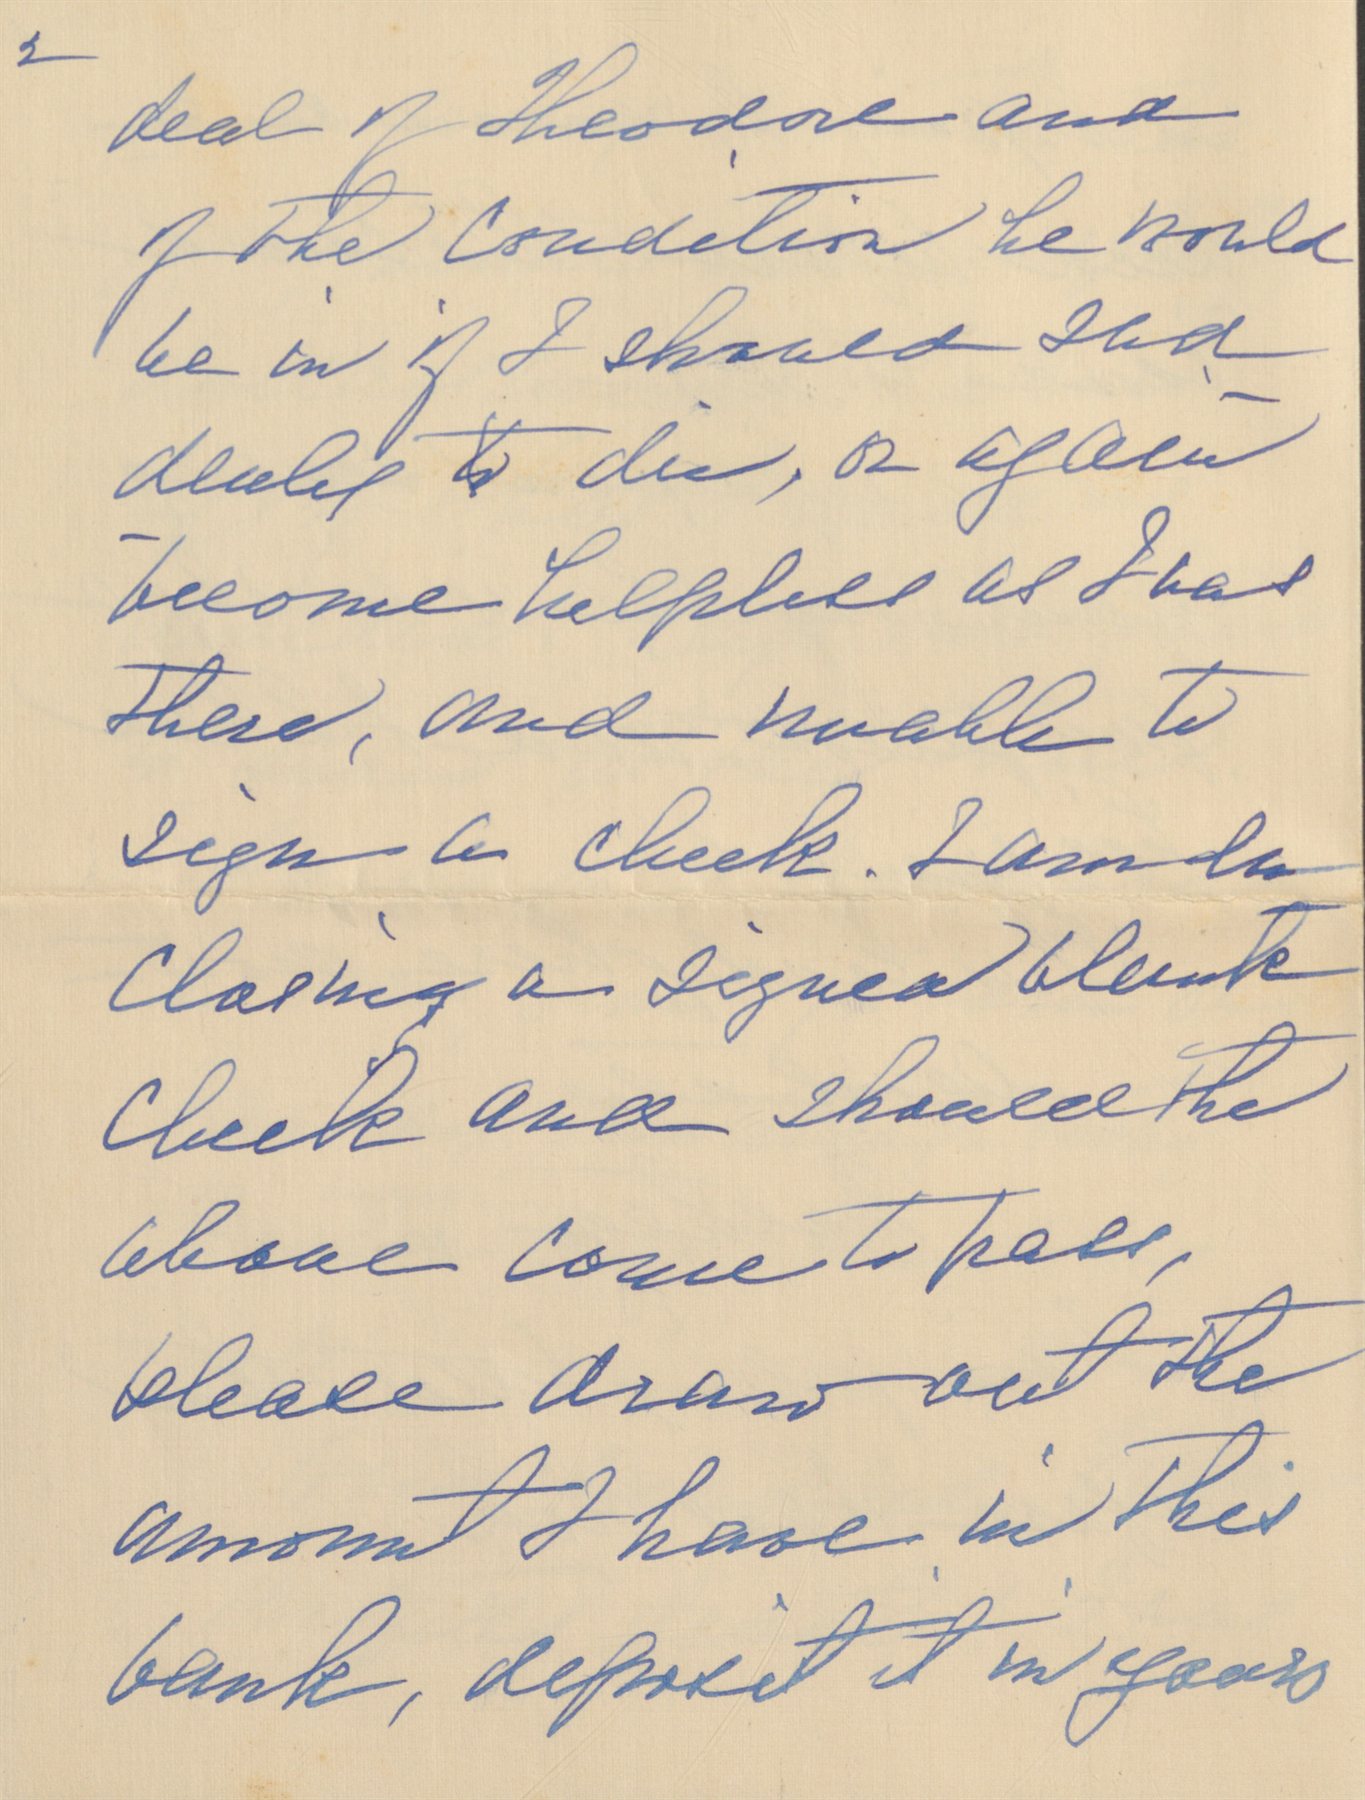 2
deal of Theodore and
of the condition he would
be in if I should sud-
denly to die, or again
become helpless as I was
there, and unable to
sign a check. I am en-
closing a signed blank
check and should the
above come to pass,
please draw out the
amount I have in this
bank, deposit it in yours